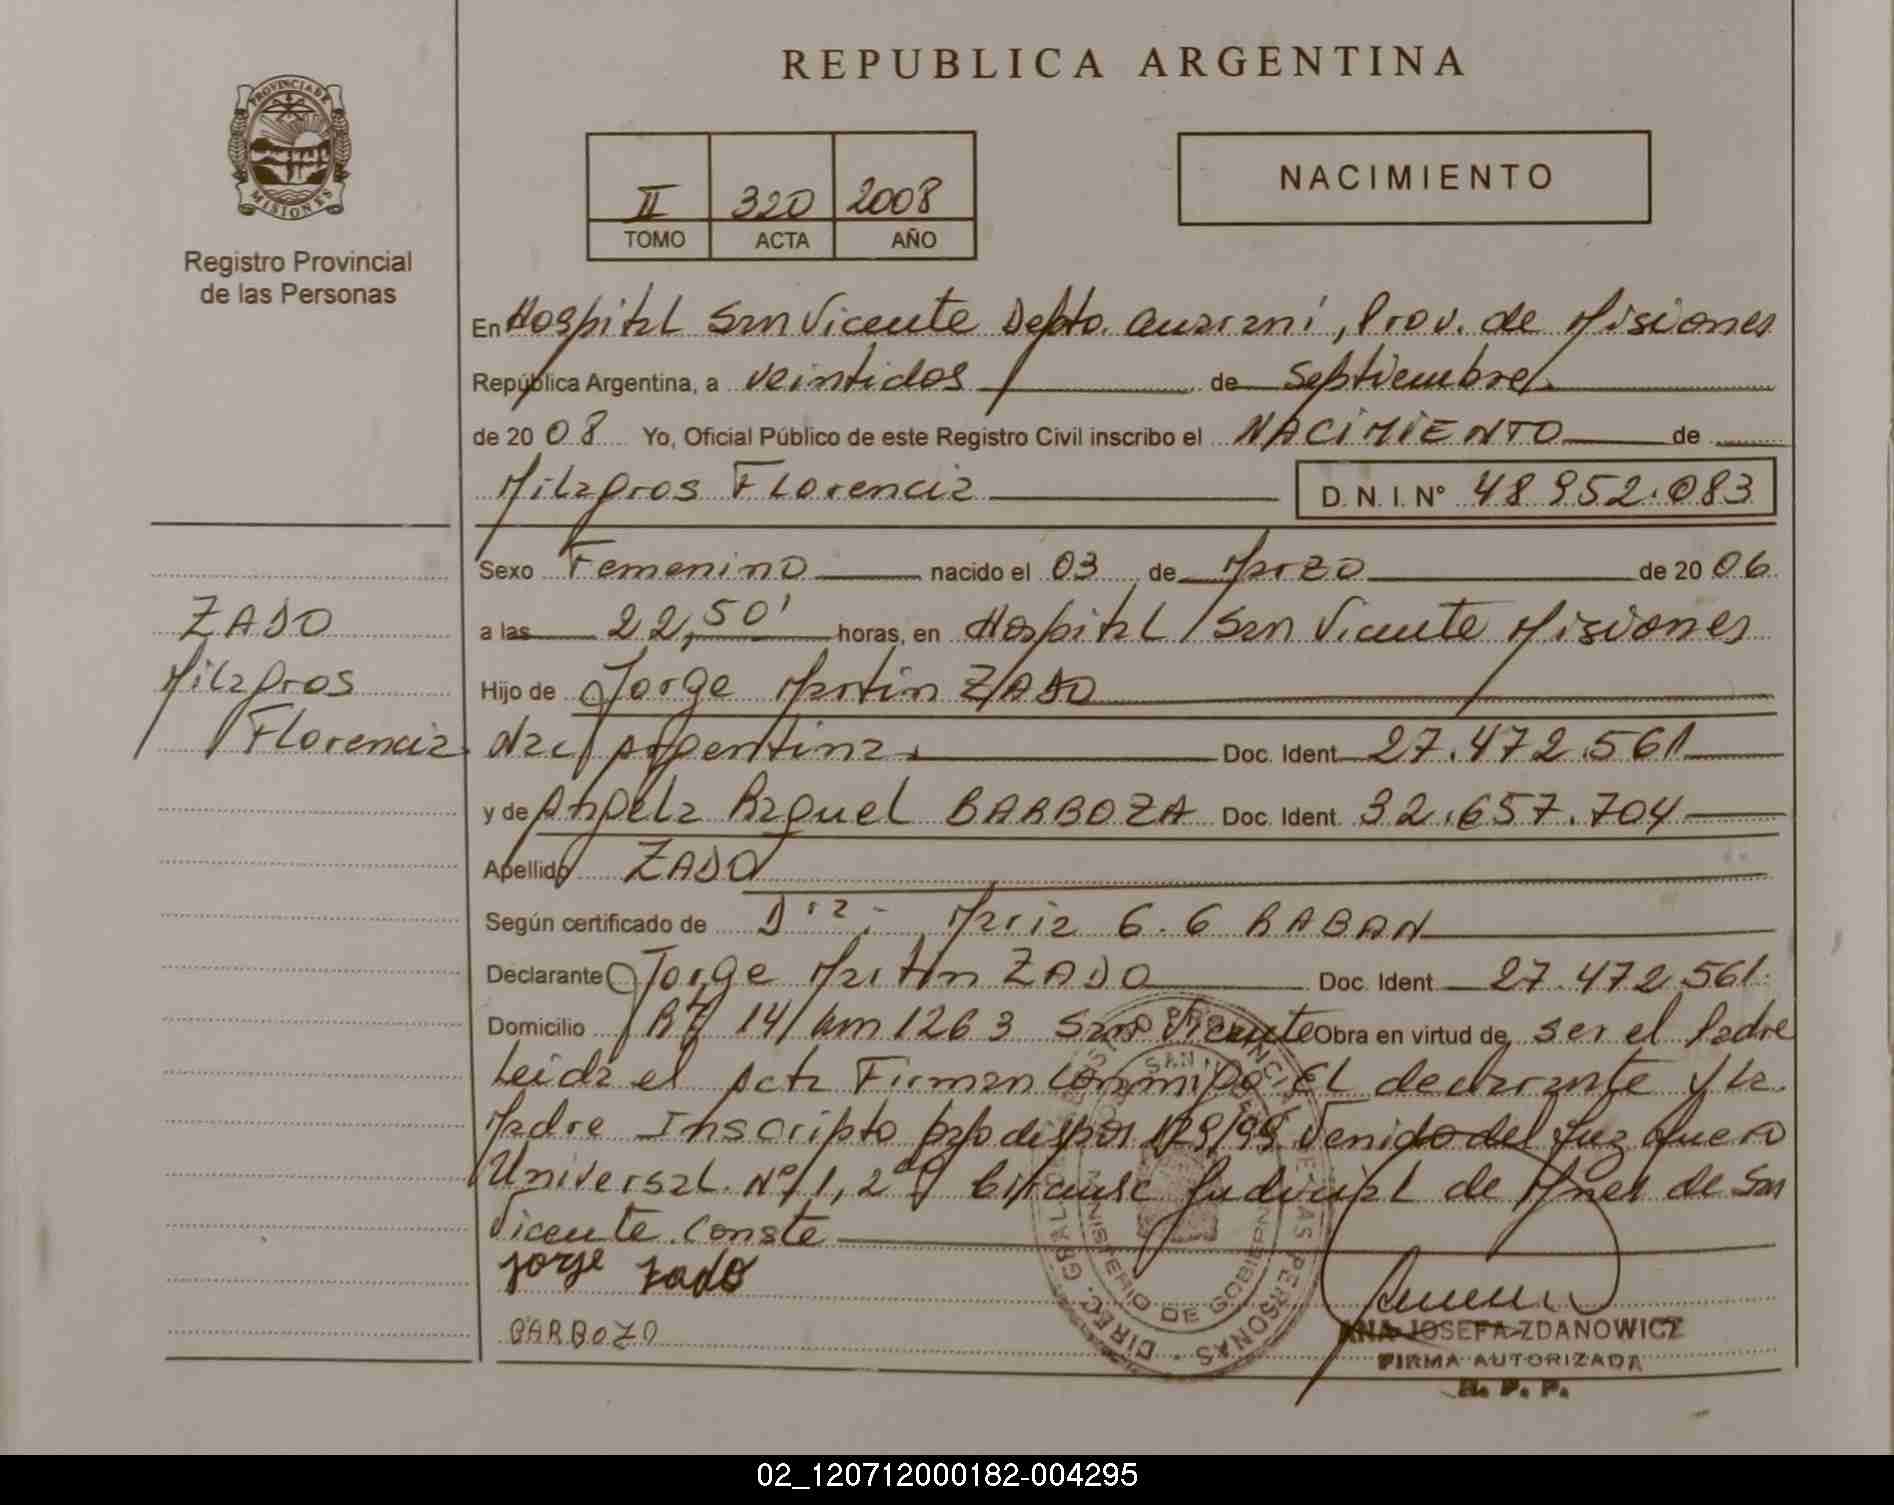 REPUBLICA ARGENTINA
PROVINCIA DE
MISIONES
Registro Provincial
de las Personas
II 320 2008
TOMO ACTA AÑO
NACIMIENTO
En Hospital San Vicente Depto. Guarani, Prov. de Misiones
República Argentina, a veintidos de Septiembre
de 20 08 Yo, Oficial Público de este Registro Civil inscribo el NACIMIENTO de
Milagros Florencia D. N. I. Nº 48 952.083
Sexo Femenino nacido el 03 de Marzo de 20 06
a las 22,50' horas, en Hospital San Vicente Misiones
Hijo de Jorge Martin ZADO
nac. Argentina. Doc. Ident. 27.472.561
y de Angela Raquel BARBOZA Doc. Ident. 32.657.704
Apellido ZADO
Según certificado de Dra. Maria G. G. RABAN
Declarante Jorge Martin ZADO Doc. Ident 27.472.561
Domicilio 14 Km 1263 San Vicente Obra en virtud de ser el Padre
Leida el acta Firman conmigo El declarante y la
Madre Inscripto bajo 129/99 Venido del Juzg
Universal Nº 1, 2da Judicial de de San
Vicente. Conste
Jorge Zado
BARBOZA
ZADO
Milagros
Florencia
MINISTERIO DE GOBIERNO
ANA JOSEFA ZDANOWICZ
FIRMA AUTORIZADA
R. P. P.
02_120712000182-004295